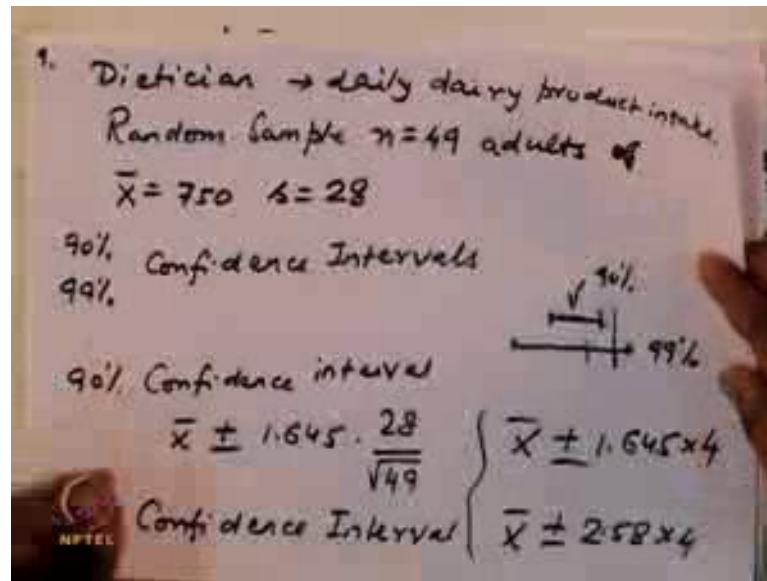 1. Dietician → daily dairy product intake.
Random Sample n=49 adults of
x̄ = 750 s=28
90%.
99%.
Confidence Intervals
90%.
99%
90%. Confidence interval
x̄ ± 1.645 . 28/√49
x̄ ± 1.645×4
Confidence Interval
x̄ ± 2.58×4
NPTEL